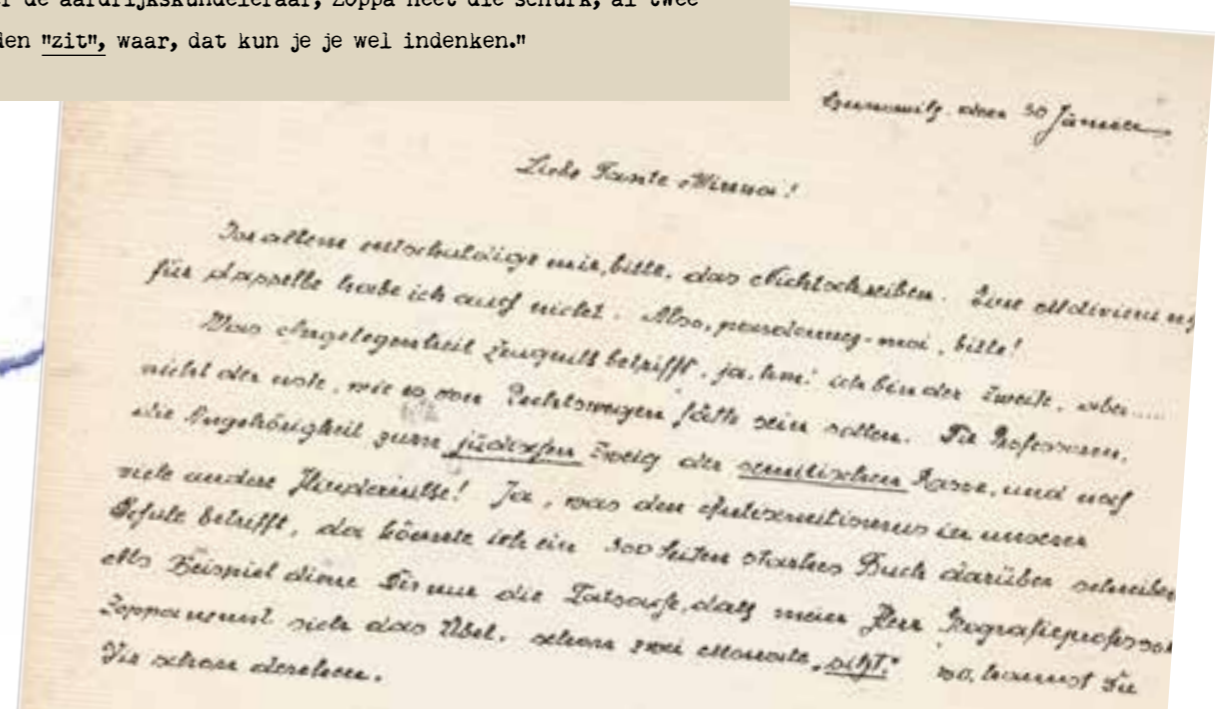 de aardrijkskundeleraar, Zoppa heet die schurk, al twee
den "zit", waar, dat kun je je wel indenken."
Czernowitz, den 30 Jänner
Liebe Tante Minna!
Vor allem entschuldige mir, bitte, das Nichtschreiben. Eine Motivierung
für dasselbe habe ich auch nicht. Also, pardonnez-moi, bitte!
Was Angelegenheit Zeugnis betrifft, ja, hm! ich bin der Zweite, aber.....
nicht der erste, wie es von Rechtswegen hätte sein sollen. Die Professoren,
die Angehörigkeit zum jüdischen Zweig der semitischen Rasse, und noch
viele andere Hindernisse! Ja, was den Antisemitismus in unserer
Schule betrifft, da könnte ich ein 300 Seiten starkes Buch darüber schreiben
Als Beispiel diene Dir nur die Tatsache, daß mein Herr Geografieprofessor
Zoppa nennt sich das Übel, schon zwei Monate „sitzt." wo, kannst Du
Dir schon denken.